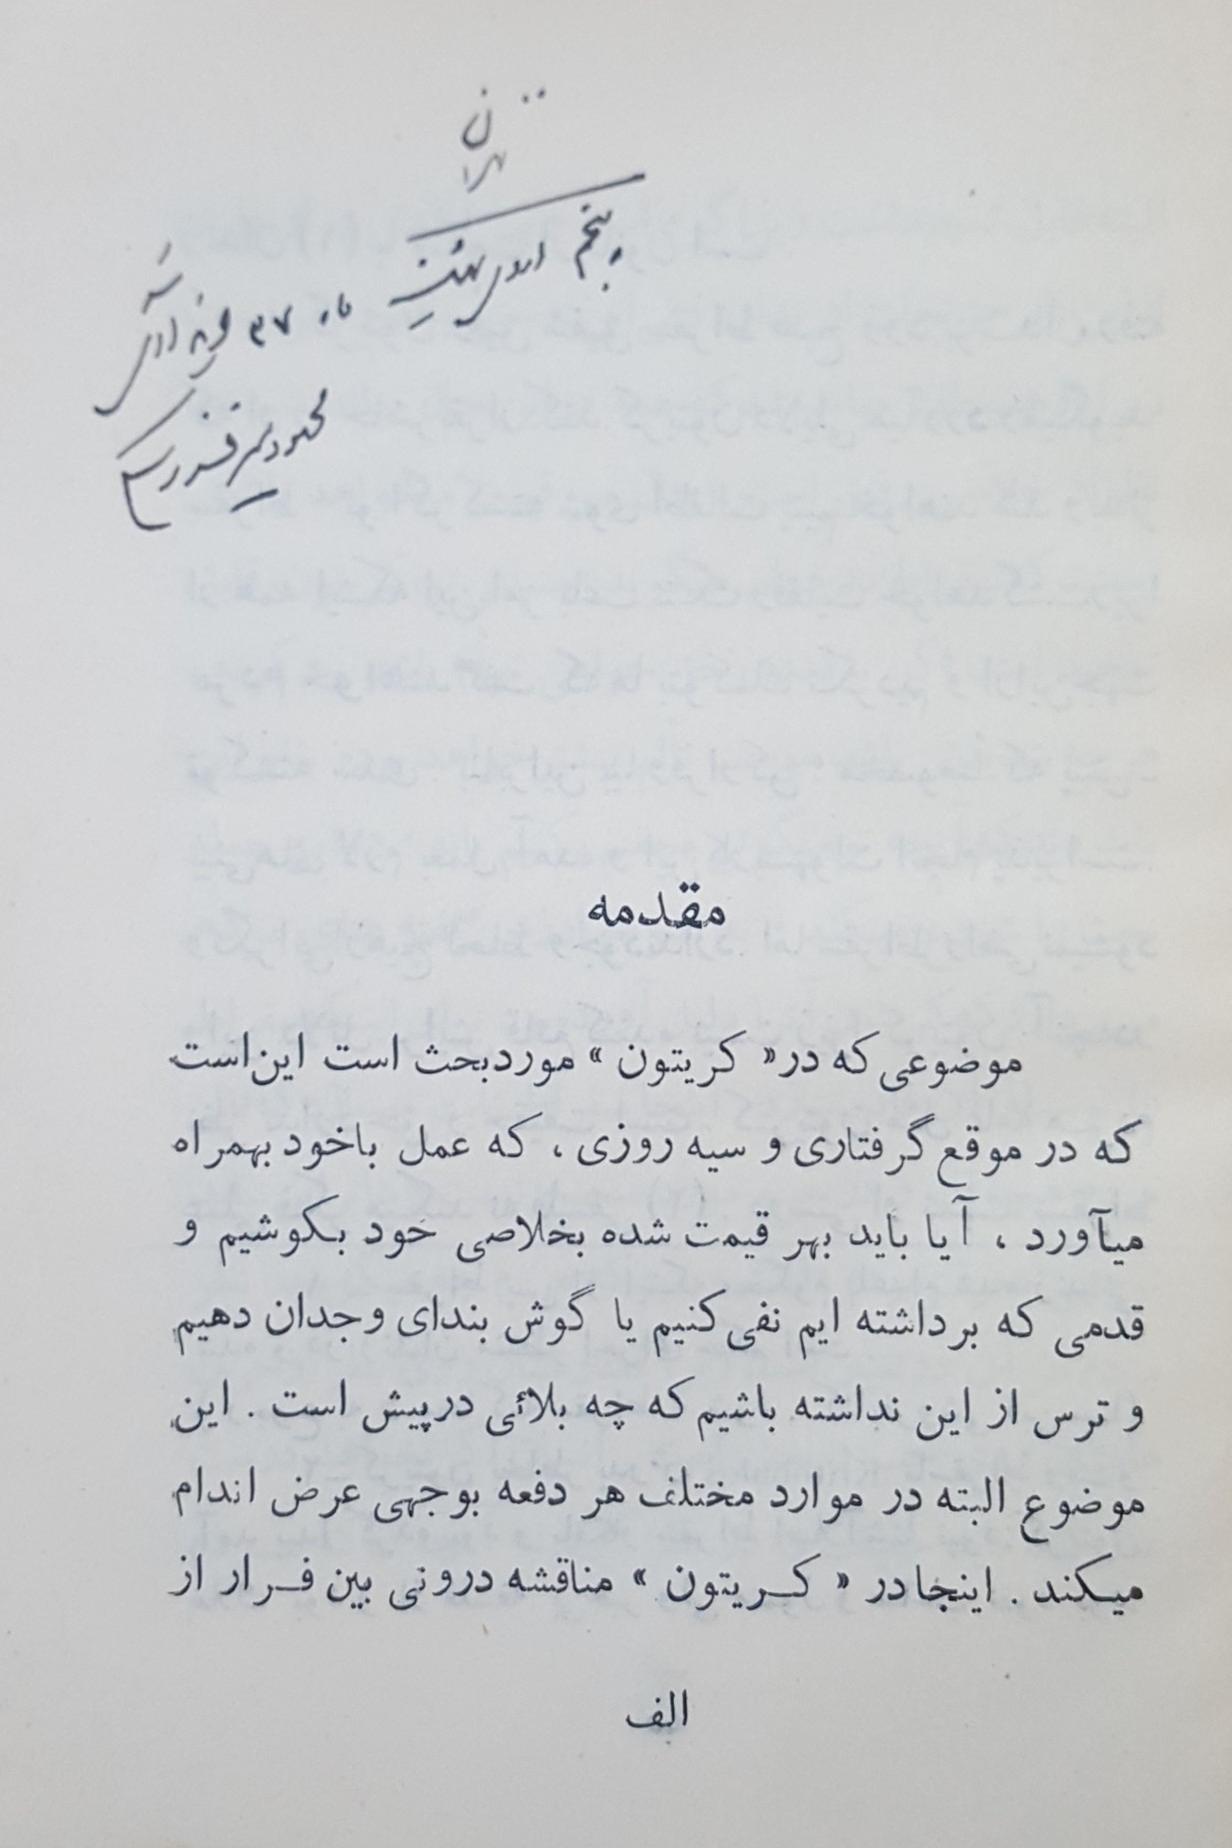 تهران
پنجم اردی بهشت ماه ۳۷
محمود
مقدمه
موضوعی که در « کریتون » موردبحث است این است
که در موقع گرفتاری و سیه روزی ، که عمل باخود بهمراه
میآورد ، آیا باید بهر قیمت شده بخلاصی خود بکوشیم و
قدمی که برداشته ایم نفی کنیم یا گوش بندای وجدان دهیم
و ترس از این نداشته باشیم که چه بلائی درپیش است . این
موضوع البته در موارد مختلف هر دفعه بوجهی عرض اندام
میکند . اینجا در « کریتون » مناقشه درونی بین فرار از
الف